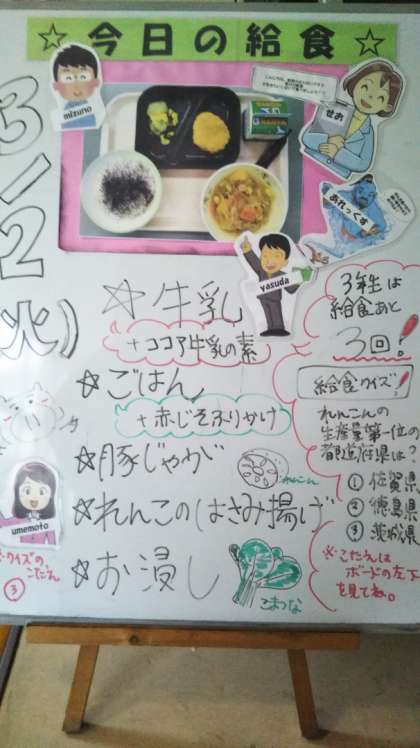 ☆今日の給食☆
mizuno
せお
あれっくす
yasuda
3/2
(火)
☆牛乳
+ココア牛乳の素
☆ごはん
+赤じそふりかけ
☆豚じゃが
☆れんこんのはさみ揚げ
れんこん
☆お浸し
こまつな
umemoto
※クイズの、
こたえ
③
3年生は
給食あと
3回!
給食クイズ!
れんこんの
生産量第一位の
都道府県は?
①佐賀県
②徳島県
③茨城県
※こたえは
ボードの左下
を見てね。